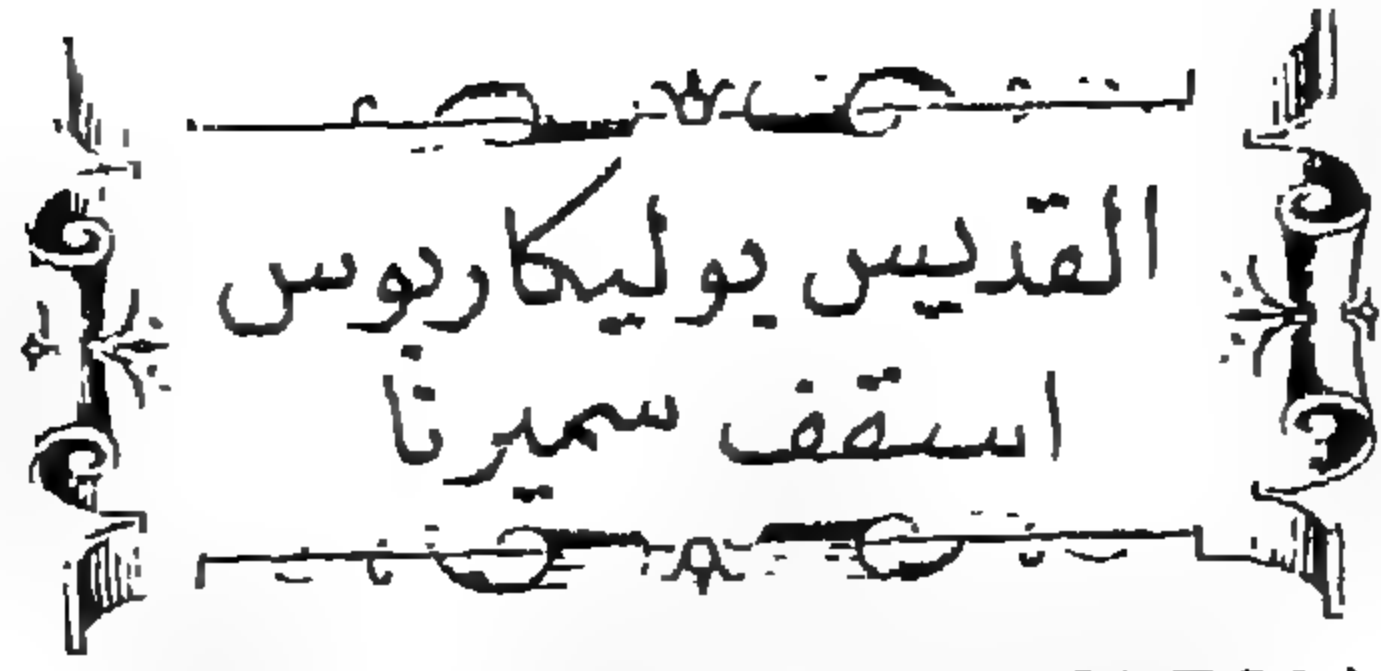 القديس بوليكاربوس
اسقف سميرنا